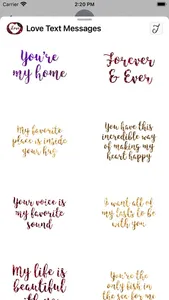 2:20 PM
Love Text Messages
You're
my home
Forever
& Ever
My favorite
place is inside
your hug
You have this
incredible way
of making my
heart happy
Your voice is
my favorite
sound
I want all of
my lasts to be
with you
My life is
beautiful
You're the
only fish in
the sea for me